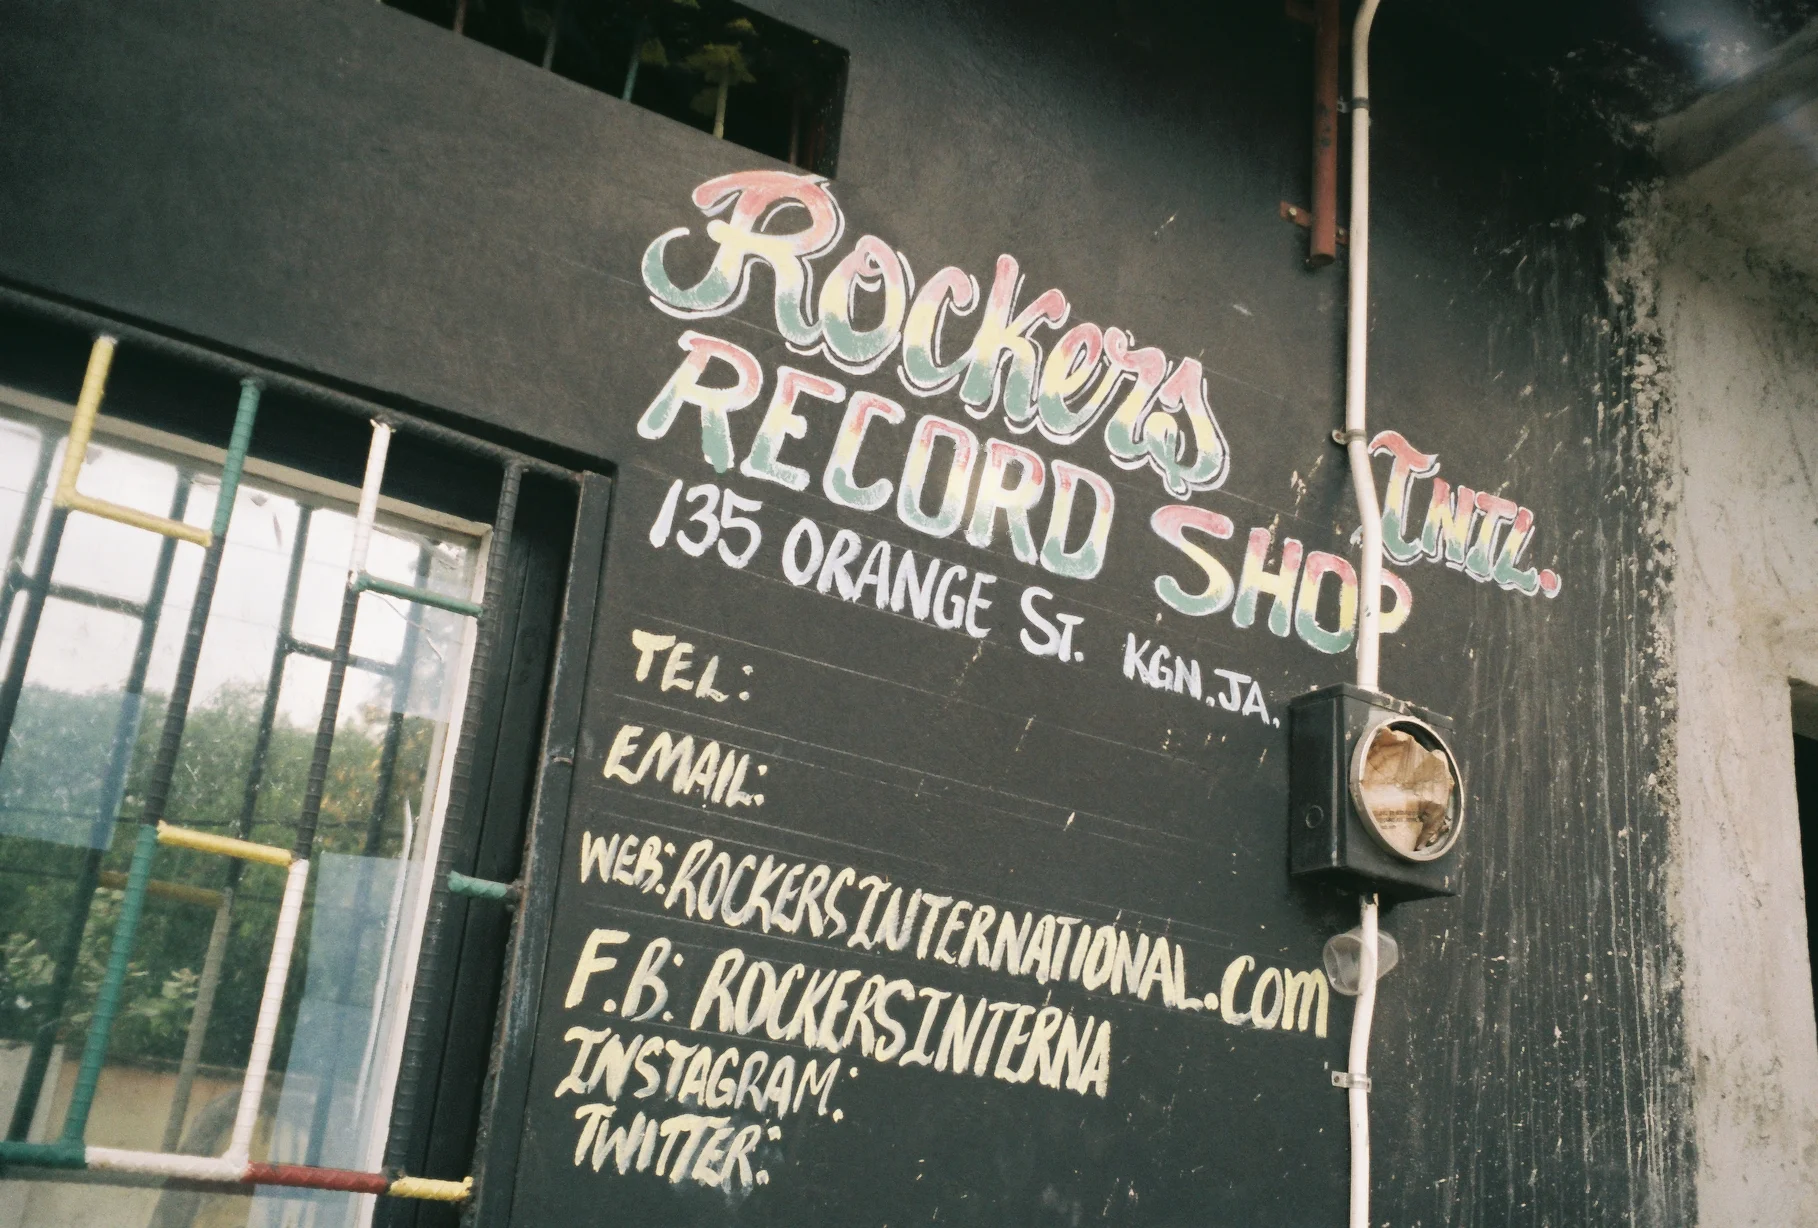 Rockers INTL.
RECORD SHOP
135 ORANGE ST. KGN.JA.
TEL:
EMAIL:
WEB:ROCKERSINTERNATIONAL.Com
F.B: ROCKERSINTERNA
INSTAGRAM:
TWITTER: